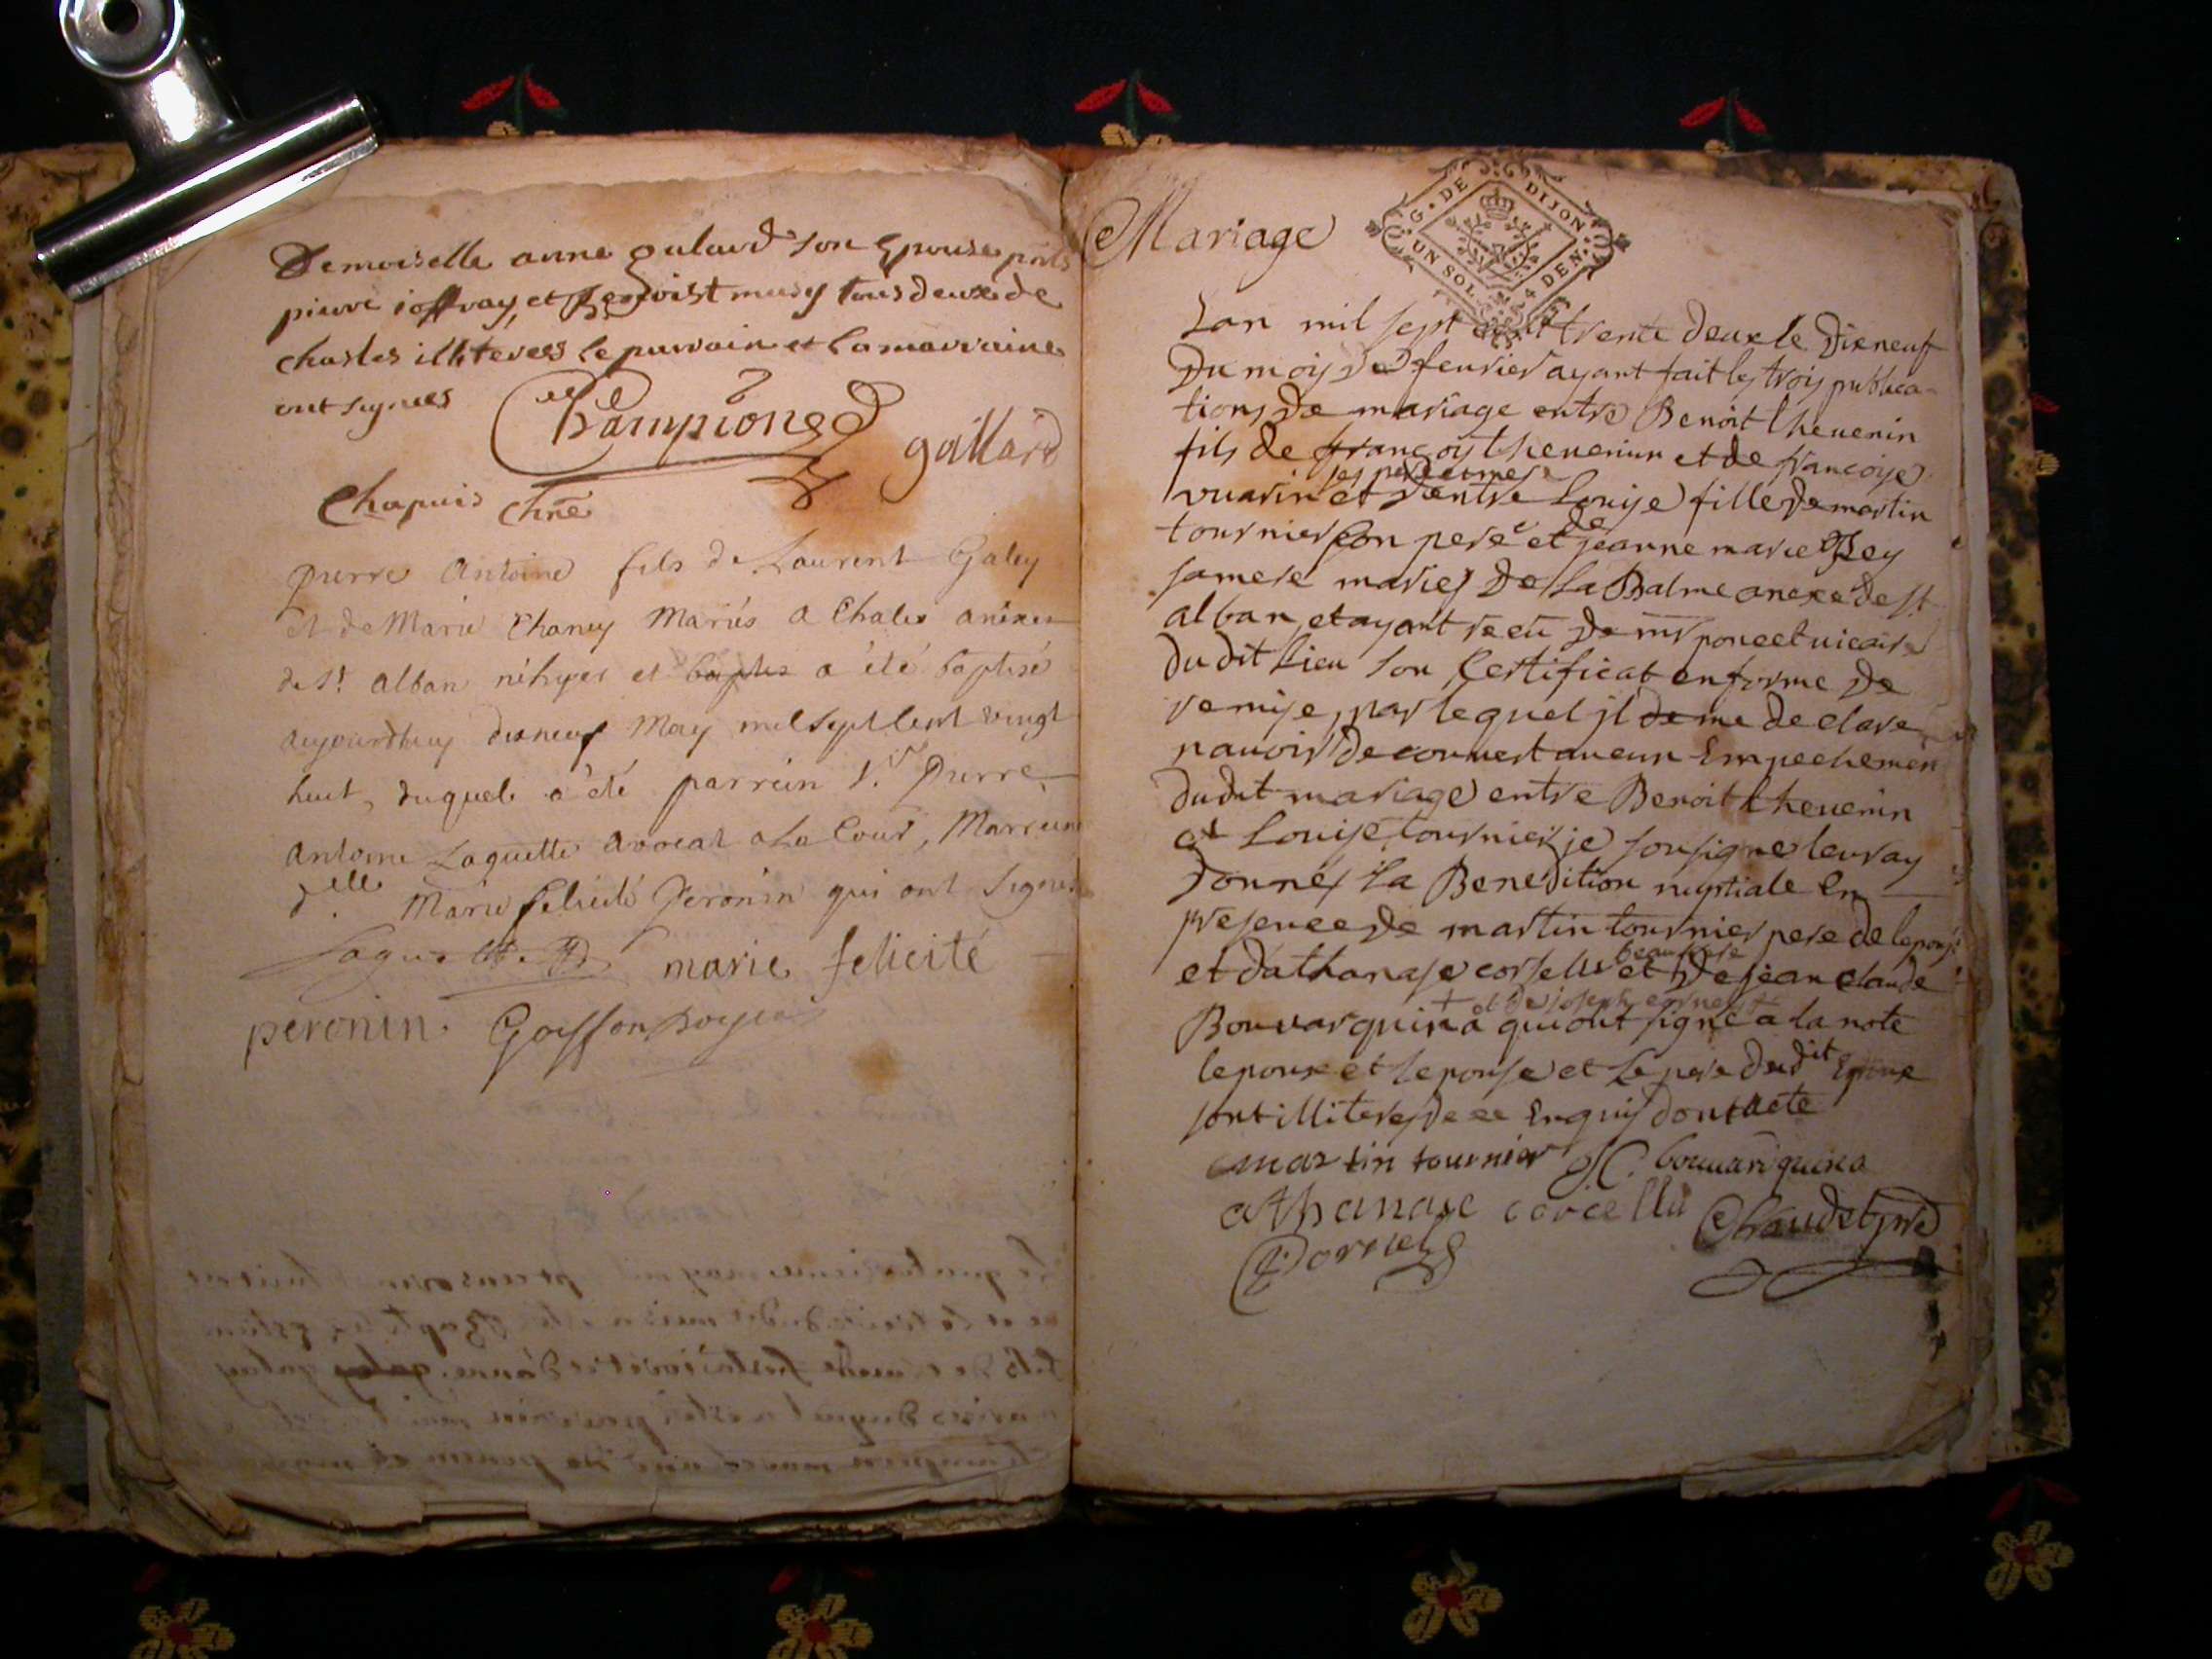 Demoiselle anne gulard son Epouse pnts
pierre joffray et Benoist musy tous deux de
Chasles illiterees le parrain et la marraine
ont signees
Championed
gaillard
Chapuis Chne
pierre Antoine fils de Laurent Galey
et de Marie Chaney Mariés a Chales anexe
de St alban né hyer et baptis a été baptisé
aujourdhuy dixneuf May mil sept Cent vingt
huit, duquel a été parrain Sr. Pierre
Antoine Laguette avocat a La Cour, Marreine
delle Marie felicité Peronin qui ont signes
Laguette
marie felicité
peronin
Goiffon
Mariage
G. DE DIJON
UN SOL 4 DEN.
Lan mil sept cent trente deux le Dixneuf
Du mois de feurier ayant fait les trois publica-
tions de mariage entre Benoit theuenin
fils de francois theuenin et de francoise
ses pere et mere
vuarin et d'entre Louise fille de martin
tournier son pere et de jeanne marie Rey
sa mere maries De La Balme anexe de St
alban, et ayant receu de mr poncet uicaire
du dit lieu son Certificat en forme de
remise, par lequel jl de me declare
nauoir decouuert aucun Empechemen
dudit mariage entre Benoit theuenin
et Louise tournier je sousigne leur ay
donnés La Benedition nuptiale En
presence de martin tournier pere de lepouse
et dathanase corcellu beaufrere et De jean claude
+ et de joseph cornet +
Bouuarquina qui ont signé a la note
lepoux et lepouse et Le pere dudit Epoux
sont illiteres de ce Enquis dont acte
martin tournier J.C. bouuarquina
athanase corcellu
Cornet